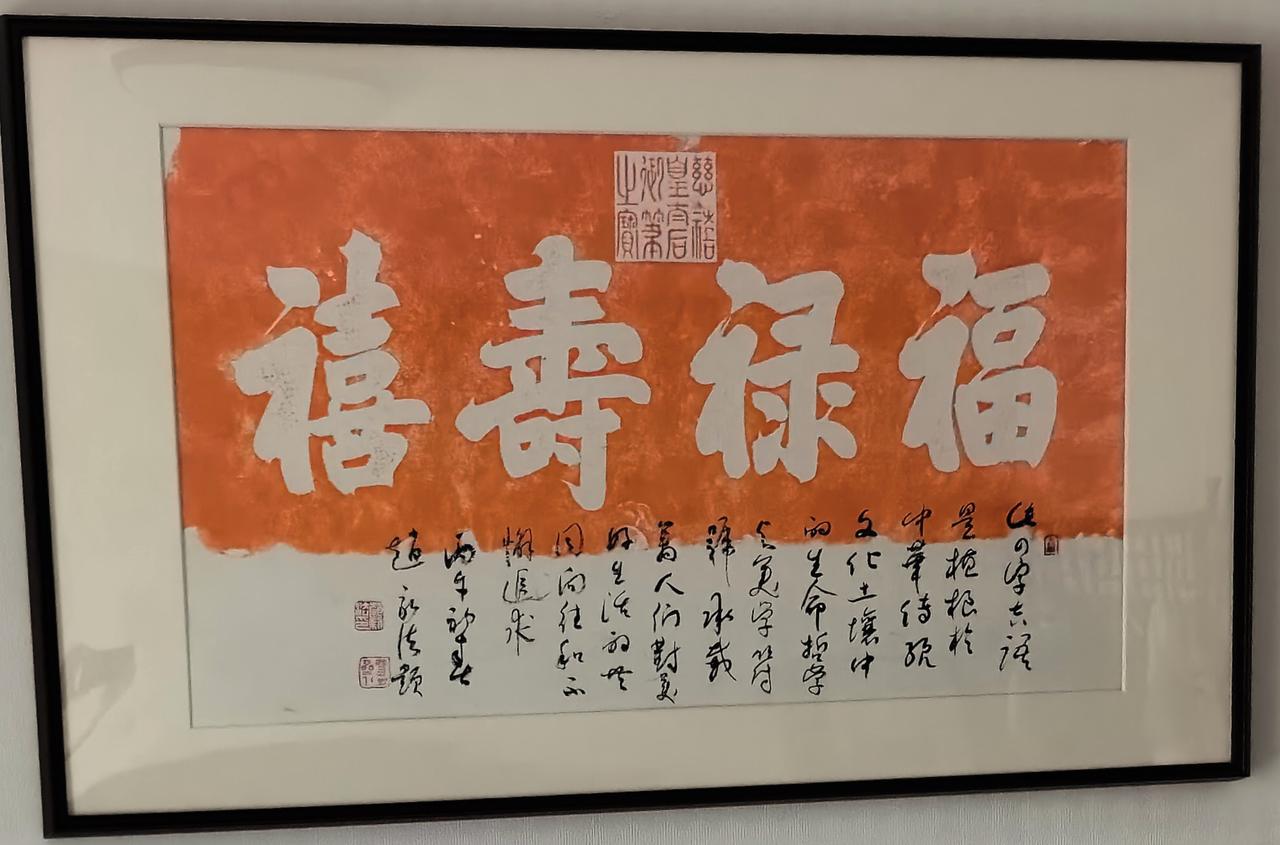 慈禧
皇太后
御筆
之寶
福禄壽禧
此四字吉語
是植根於
中華傳統
文化土壤中
的生命哲學
與美學符
號承載
著人們對美
好生活的共
同向往和不
懈追求
丙午春
趙永題